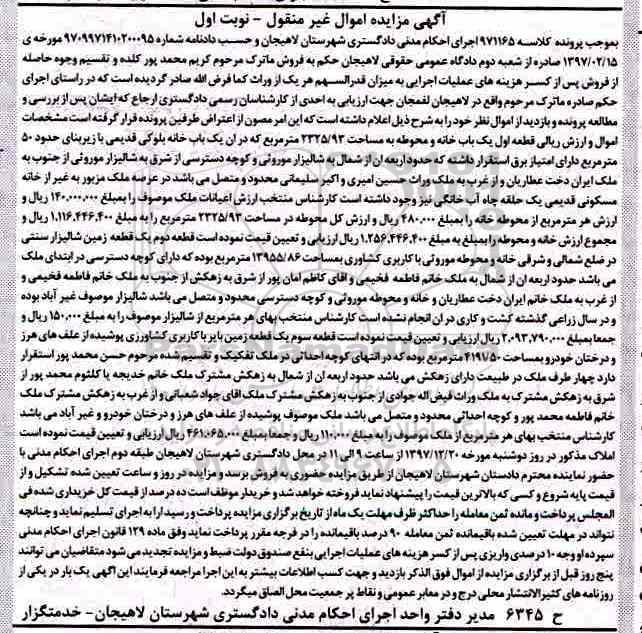 آگهی مزایده اموال غیر منقول - نوبت اول
بموجب پرونده کلاسه ۹۷۱۱۶۵ اجرای احکام مدنی دادگستری شهرستان لاهیجان و حسب دادنامه شماره ۹۷۰۹۹۷۱۴۱۰۲۰۰۰۹۵ مورخه ی
۱۳۹۷/۰۲/۱۵ صادره از شعبه دوم دادگاه عمومی حقوقی لاهیجان حکم به فروش ماترک مرحوم کریم محمد پور کلده و تقسیم وجوه حاصله
از فروش پس از کسر هزینه های عملیات اجرایی به میزان قدرالسهم هر یک از وراث کما فرض الله صادر گردیده است که در راستای اجرای
حکم صادره ماترک مرحوم واقع در لاهیجان لفمجان جهت ارزیابی به احدی از کارشناسان رسمی دادگستری ارجاع که ایشان پس از بررسی و
مطالعه پرونده و بازدید از اموال نظر خود را به شرح ذیل اعلام داشته است که این امر مصون از اعتراض طرفین پرونده قرار گرفته است مشخصات
اموال و ارزش ریالی قطعه اول یک باب خانه و محوطه به مساحت ۲۳۲۵/۹۳ مترمربع که در ان یک باب خانه بلوکی قدیمی با زیربنای حدود ۵۰
مترمربع دارای امتیاز برق استقرار داشته که حدود اربعه ان از شمال به شالیزار موروثی و کوچه دسترسی از شرق به شالیزار موروثی از جنوب به
ملک ایران دخت عطاریان و از غرب به ملک وراث حسین امیری و اکبر سلیمانی محدود و متصل می باشد در عرصه ملک مزبور به غیر از خانه
مسکونی قدیمی یک حلقه چاه آب خانگی نیز وجود داشته است کارشناس منتخب ارزش اعیانات ملک موصوف را بمبلغ ۱۴۰،۰۰۰،۰۰۰ ریال و
ارزش هر مترمربع از محوطه خانه را بمبلغ ۴۸۰،۰۰۰ ریال و ارزش کل محوطه در مساحت ۲۳۲۵/۹۳ مترمربع را به مبلغ ۱،۱۱۶،۴۴۶،۴۰۰ ریال و
مجموع ارزش خانه و محوطه را بمبلغ به مبلغ ۱،۲۵۶،۴۴۶،۴۰۰ ریال ارزیابی و تعیین قیمت نموده است قطعه دوم یک قطعه زمین شالیزار سنتی
در ضلع شمالی و شرقی خانه و محوطه موروثی با کاربری کشاورزی بمساحت ۱۳۹۵۵/۸۶ مترمربع بوده که دارای کوچه دسترسی در ابتدای ملک
می باشد حدود اربعه ان از شمال به ملک خانم فاطمه فخیمی و اقای کاظم امان پور از شرق به زهکش از جنوب به ملک خانم فاطمه فخیمی و
از غرب به ملک خانم ایران دخت عطاریان و خانه و محوطه موروثی و کوچه دسترسی محدود و متصل می باشد شالیزار موصوف غیر آباد بوده
و در سال زراعی گذشته کشت و کاری در ان انجام نشده است کارشناس منتخب بهای هر مترمربع از شالیزار موصوف را به مبلغ ۱۵۰،۰۰۰ ریال و
جمعا بمبلغ ۲،۰۹۳،۷۹۰،۰۰۰ ریال ارزیابی و تعیین قیمت نموده است قطعه سوم یک قطعه زمین بایر با کاربری کشاورزی پوشیده از علف های هرز
و درختان خودرو بمساحت ۴۱۹۱/۵۰ مترمربع بوده که در انتهای کوچه احداثی در ملک تفکیک و تقسیم شده مرحوم حسن محمد پور استقرار
دارد چهار طرف ملک در طبیعت دارای زهکش می باشد حدود اربعه ان از شمال به زهکش مشترک ملک خانم خدیجه یا کلثوم محمد پور از
شرق به زهکش مشترک به ملک وراث فیض اله جوادی از جنوب به زهکش مشترک ملک اقای جواد شعبانی و از غرب به زهکش مشترک ملک
خانم فاطمه محمد پور و کوچه احداثی محدود و متصل می باشد ملک موصوف پوشیده از علف های هرز و درختان خودرو و غیر آباد می باشد
کارشناس منتخب بهای هر مترمربع از ملک موصوف را به مبلغ ۱۱۰،۰۰۰ ریال و جمعا بمبلغ ۴۶۱،۰۶۵،۰۰۰ ریال ارزیابی و تعیین قیمت نموده است
املاک مذکور در روز دوشنبه مورخه ۱۳۹۷/۱۲/۲۰ از ساعت ۹ الی ۱۱ در محل دادگستری شهرستان لاهیجان طبقه دوم اجرای احکام مدنی با
حضور نماینده محترم دادستان شهرستان لاهیجان از طریق مزایده حضوری به فروش برسد و مزایده در روز و ساعت تعیین شده تشکیل و از
قیمت پایه شروع و کسی که بالاترین قیمت را پیشنهاد نماید فروخته خواهد شد و خریدار موظف است ده درصد از قیمت کل خریداری شده فی
المجلس پرداخت و مانده ثمن معامله را حداکثر ظرف مهلت یک ماه از تاریخ برگزاری مزایده پرداخت و رسید ارا به اجرای تسلیم نماید و چنانچه
نتواند در مهلت تعیین شده باقیمانده ثمن معامله ۹۰ درصد باقیمانده را در فرجه مقرر پرداخت نماید وفق ماده ۱۲۹ قانون اجرای احکام مدنی
سپرده او وجه ۱۰ درصدی واریزی پس از کسر هزینه های عملیات اجرایی بنفع صندوق دولت ضبط و مزایده تجدید می شود متقاضیان می توانند
پنج روز قبل از برگزاری مزایده از اموال فوق الذکر بازدید و جهت کسب اطلاعات بیشتر به این اجرا مراجعه فرمایند این اگهی یک بار در یکی از
روزنامه های کثیرالانتشار محلی درج و در معابر عمومی و نقاط پر جمعیت محل الصاق میگردد.
ح ۶۳۴۵ مدیر دفتر واحد اجرای احکام مدنی دادگستری شهرستان لاهیجان- خدمتگزار